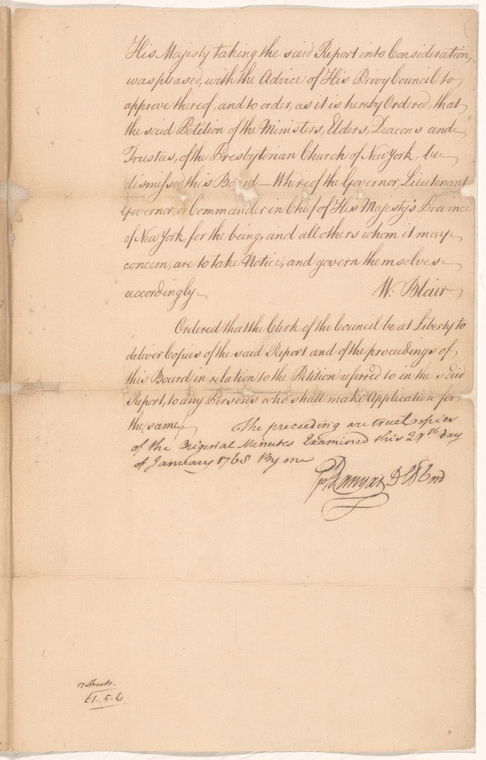 His Majesty taking the said Report into Consideration,
was pleased, with the Advice of His Privy Council to
approve thereof, and to order, as it is hereby Ordered, that
the said Petition of the Ministers, Elders, Deacons and
Trustees, of the Presbyterian Church of New York, be
dismissed this Board — Whereof the Governor, Lieutenant
Governor, or Commander in Chief of His Majesty's Province
of New York for the being, and all others whom it may
concern, are to take Notice, and govern themselves
accordingly W. Blair
Ordered that the Clerk of the Council be at Liberty to
deliver Copies of the said Report and of the proceedings of
this Board in relation to the Petition referred to in the said
Report, to any Persons who shall make Application for
the same. The preceeding are true Copies
of the Original Minutes Examined this 29th day
of January 1768 By me
Banyar D
sheets.
£1.5.6